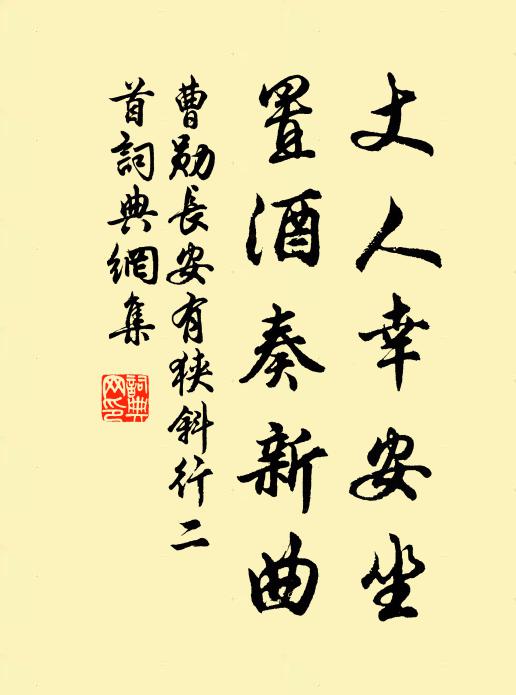 丈人幸安坐
置酒奏新曲
曹勛長安有狹斜行二
首詞典網集
詞典網印